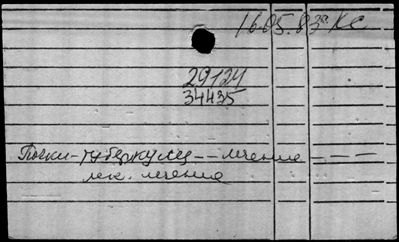 16.05.83г. КС
29124
34435
Почки - туберкулез -- лечение - - -
лек. лечение